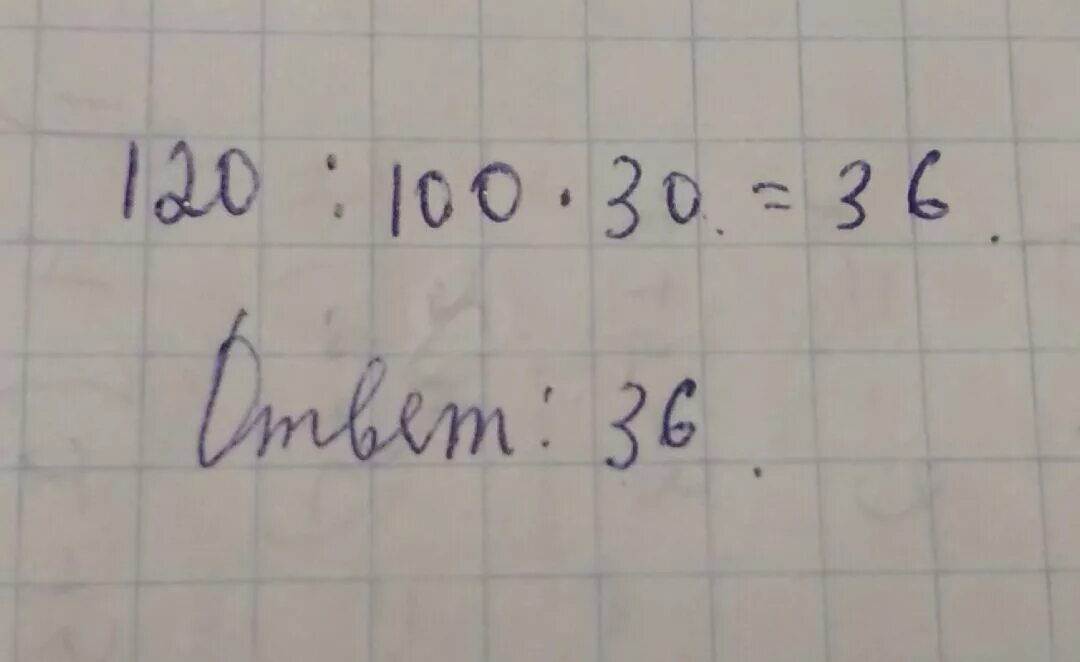 120 : 100 · 30. = 36.
Ответ: 36.